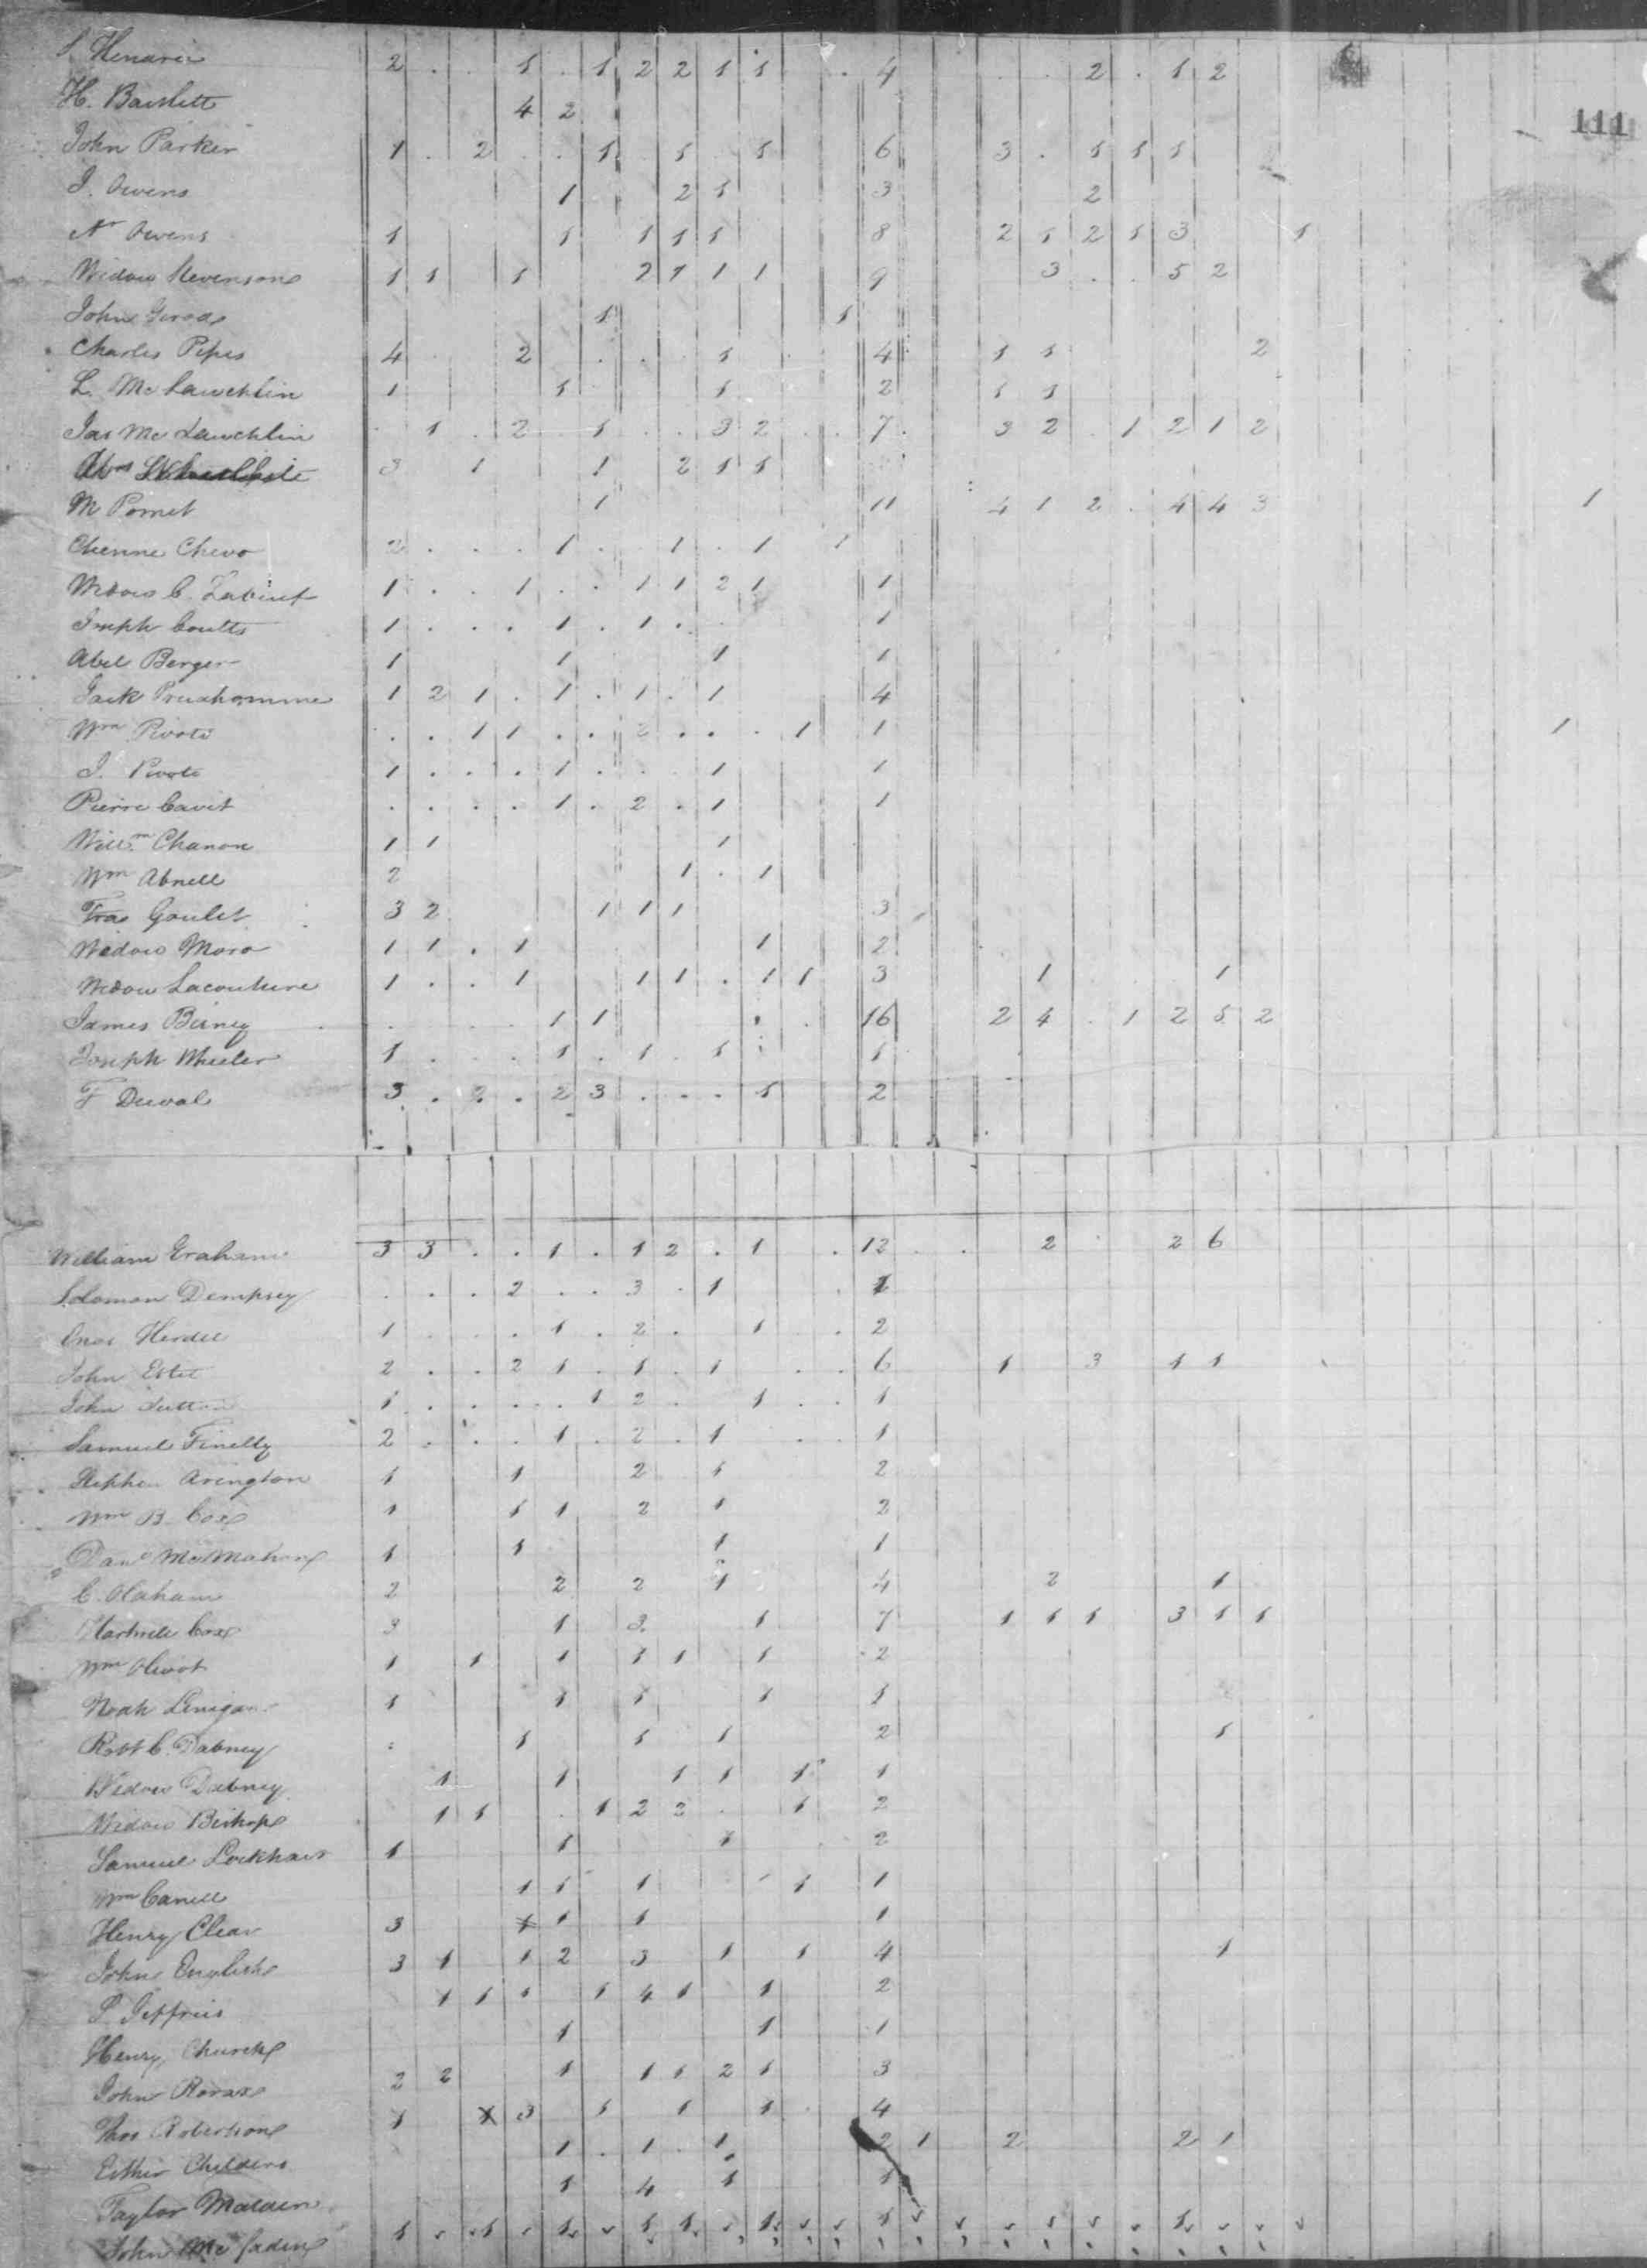 S. Henarie 2 . . 1 . 1 2 2 1 1 . 4 . . 2 . 1 2
111
H. Bartlett 4 2
John Parker 1 . 2 . . 1 . 1 . 1 6 3 . 1 1 1
J. Owens 1 2 1 3 2
N Owens 1 1 1 1 1 8 2 1 2 1 3 1
Widow Stevenson 1 1 1 2 1 1 1 9 3 . . 5 2
John 1 1
Charles Pipes 4 2 . . . 1 4 1 1 2
L. McLauchlin 1 1 1 2 1 1
Jas McLauchlin . 1 . 2 . 1 . . 3 2 . . 7 3 2 . 1 2 1 2
3 1 1 2 1 1
M Pomet 1 11 4 1 2 . 4 4 3 1
Chevo 2 . . . 1 . . 1 . 1 1
Widow C. 1 . . 1 . . 1 1 2 1 1
Joseph Coults 1 . . . 1 . 1 . 1
Abel Berger 1 1 1 1
Jack Pruxhomme 1 2 1 . 1 . 1 . 1 4
Wm Pivoto . . 1 1 . . 2 . . . 1 1 1
J. Pivoto 1 . . . 1 . . . 1 1
Pierre Cavit . . . . 1 . 2 . 1 1
Willm Chanon 1 1 1
Wm Abnell 2 1 . 1
Fras Goulet 3 2 1 1 1 3
Widow Moro 1 1 . 1 1 2
Widow Lacouture 1 . . 1 1 1 . 1 1 3 1 1
James Birney 1 1 16 2 4 . 1 2 5 2
Joseph Wheeler 1 . . . 1 . 1 . 1 1
F Duval 3 . 2 . 2 3 . . . 1 2
William Graham 3 3 . . 1 . 1 2 . 1 . 12 . . 2 2 6
Solomon Dempsey . . . 2 . . 3 . 1 1
Herdee 1 . . . 1 . 2 . 1 . 2
John Estee 2 . . 2 1 . 1 . 1 . . 6 1 3 1 1
John Sutton 1 . . . . 1 2 . 1 . . 1
Samuel Finelly 2 . . . 1 . 2 . 1 . . 1
Stephen Arington 1 1 2 1 2
Wm B. Cox 1 1 1 2 1 2
Danl McMahon 1 1 1 1
C. Olaham 2 2 2 1 4 2 1
Hartwell Cox 3 1 3 1 7 1 1 1 3 1 1
Wm Olivot 1 1 1 1 1 1 2
Noah Lenigan 1 1 1 1 1
Robt C. Dabney 1 1 1 2 1
Widow Dabney 1 1 1 1 1 1
Widow Bishop 1 1 . 1 2 2 . 1 2
Samuel Lockhart 1 1 1 2
Wm Canell 1 1 1 1 1
Henry Clear 3 1 1 1
John English 3 1 1 2 3 1 1 4 1
P. Jeffries 1 1 1 1 4 1 1 2
Henry Church 1 1 1
John 2 2 1 1 1 2 1 3
Thos Robertson 1 X 3 1 1 1 4
Esther Childers 1 . 1 . 1 2 1 2 2 1
Taylor Malden 1 4 1 1
John McFaden 1 1 1 1 1 1 1 1 1